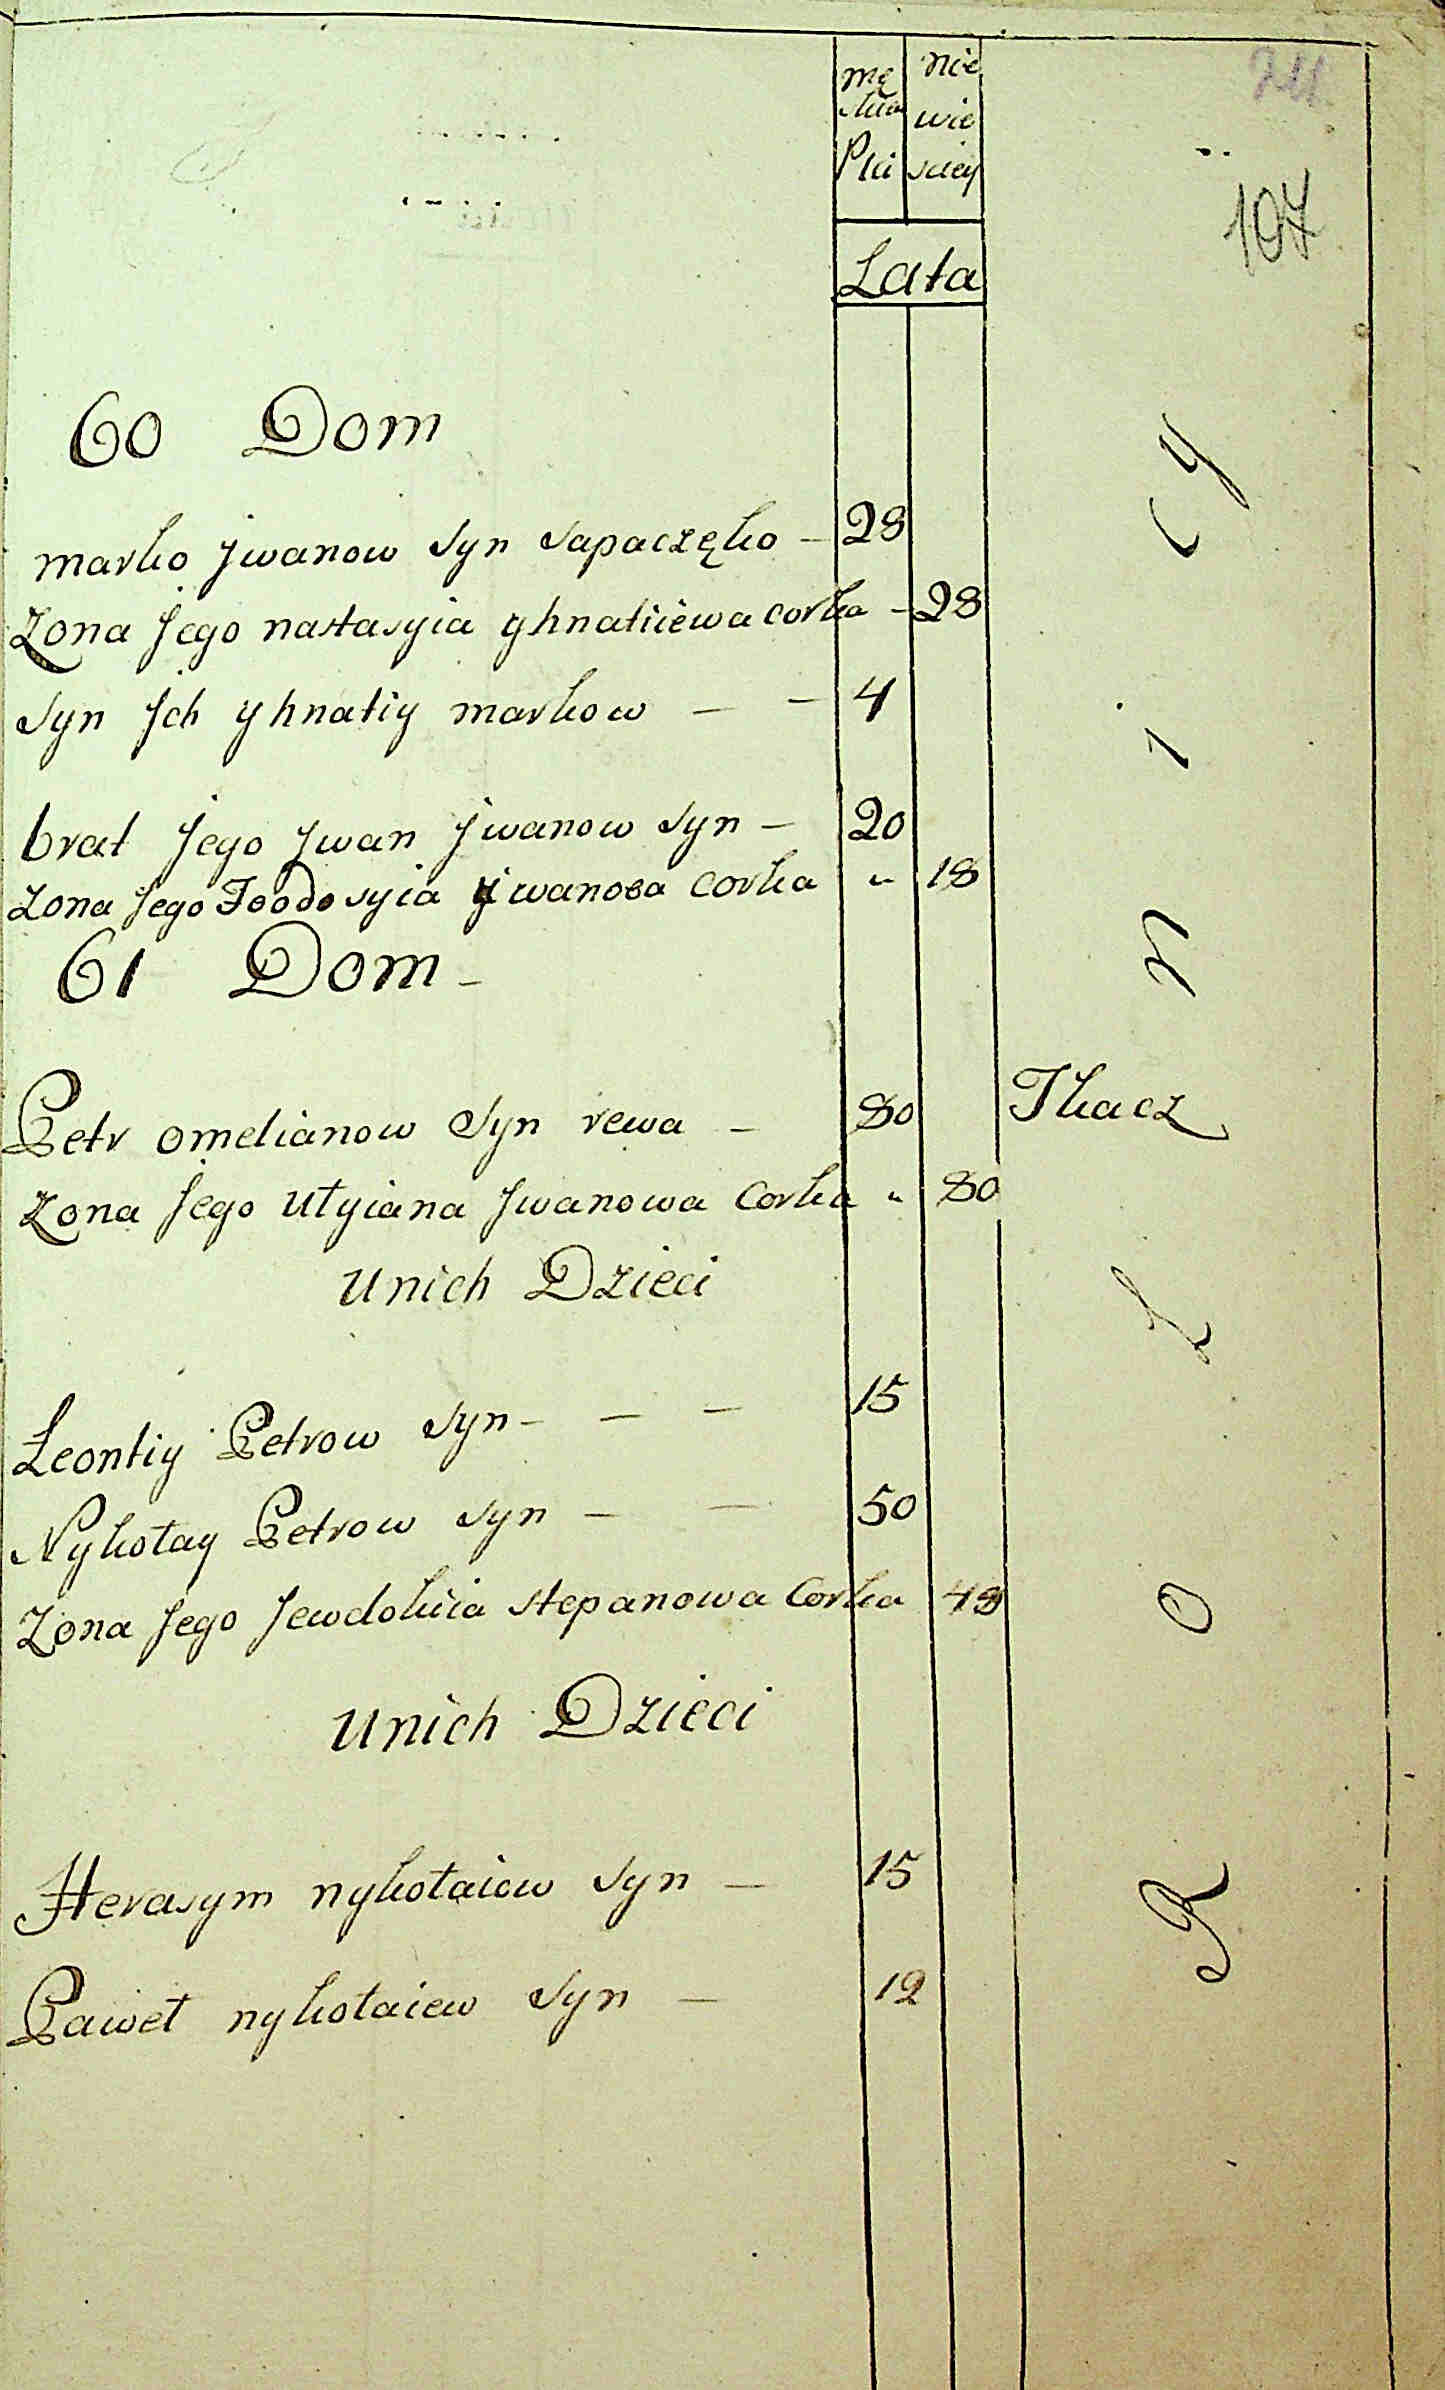 mę nie
ska wie
Płci sciey
107
Lata
60 Dom
marko Jwanow Syn Sapaczęko - 28
Zona Jego nastasyia yhnatiiewa corka - 28
Syn Jch yhnatiy markow - - 4
brat Jego Jwan Jwanow Syn - 20
Zona Jego Feodosyia Jwanowa Corka " 18
61 Dom -
Petr omelianow Syn rewa - 80 Tkacz
Zona Jego Utyiana Jwanowa Corka " 80
Unich Dzieci
Leontiy Petrow Syn - - - 15
Nykołay Petrow Syn - - 50
Zona Jego Jewdokiia Stepanowa Corka 48
Unich Dzieci
Herasym nykołaiew Syn - 15
Paweł nykołaiew Syn - 12
Rolnicy